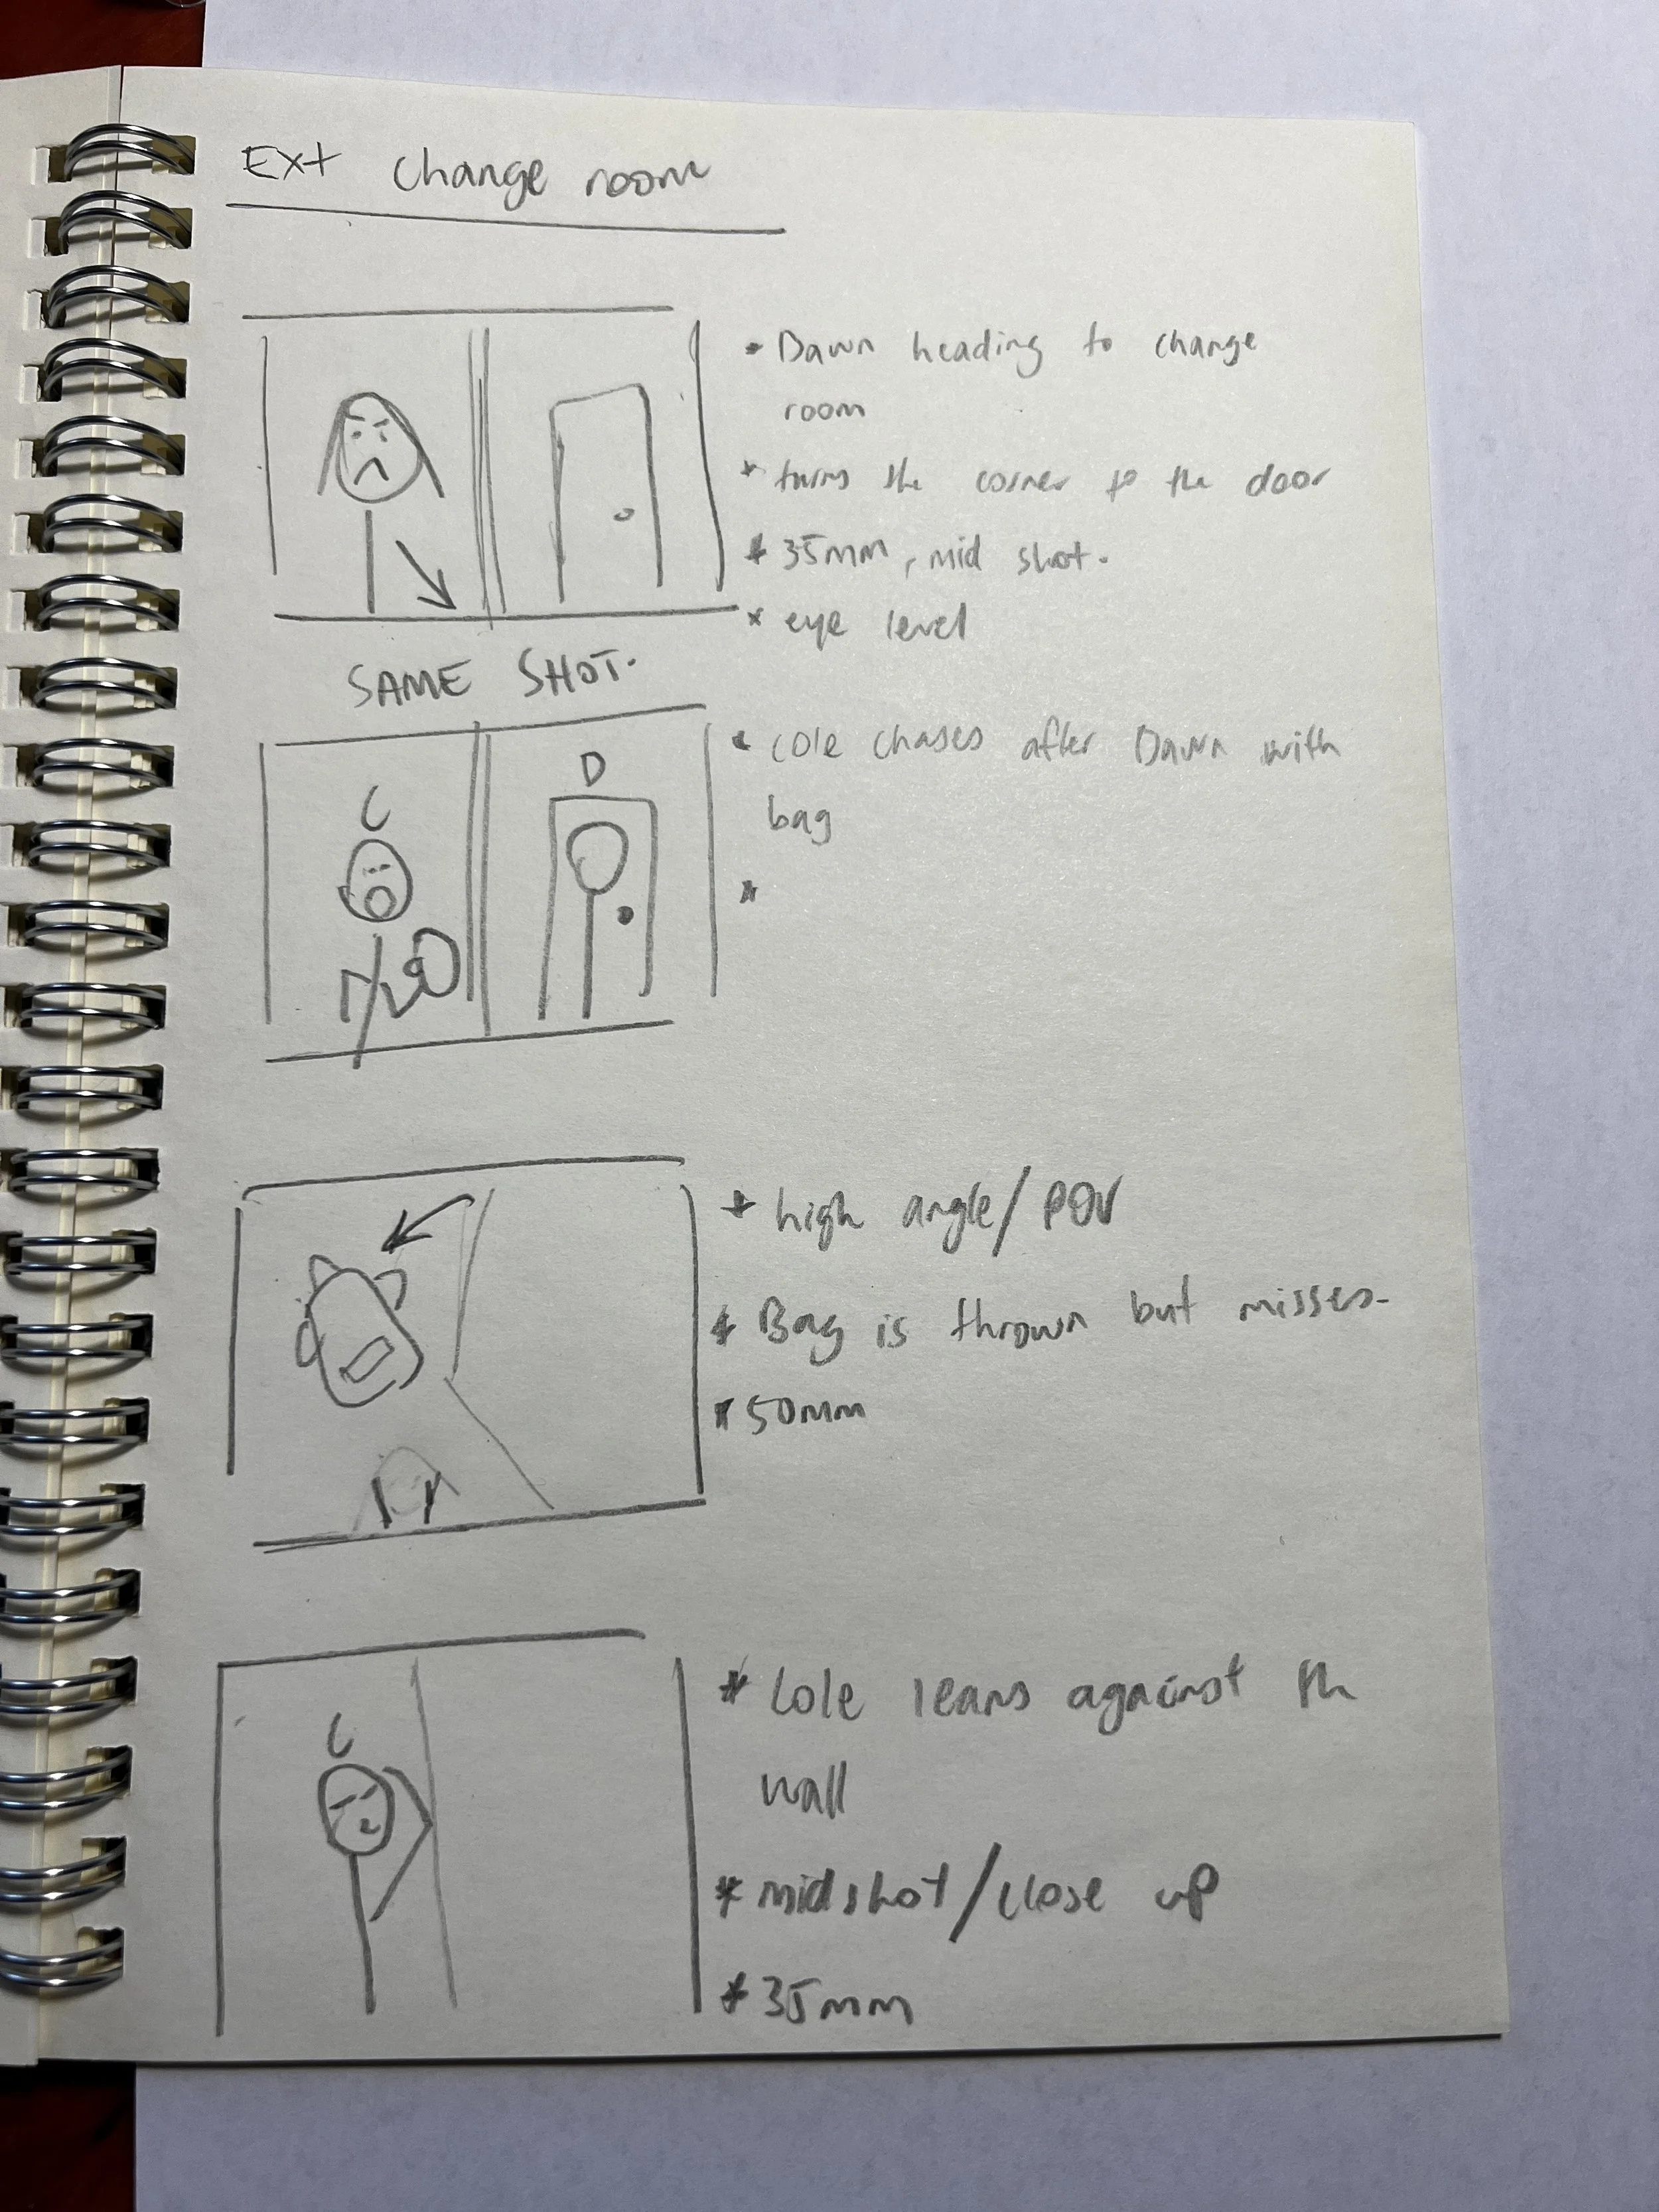 Ext change room
• Dawn heading to change
room
* turns the corner to the door
* 35mm, mid shot.
* eye level
SAME SHOT.
• Cole chases after Dawn with
bag
C
D
*
* high angle/POV
* Bag is thrown but misses-
* 50mm
* Cole leans against th
wall
C
* midshot/close up
* 35mm